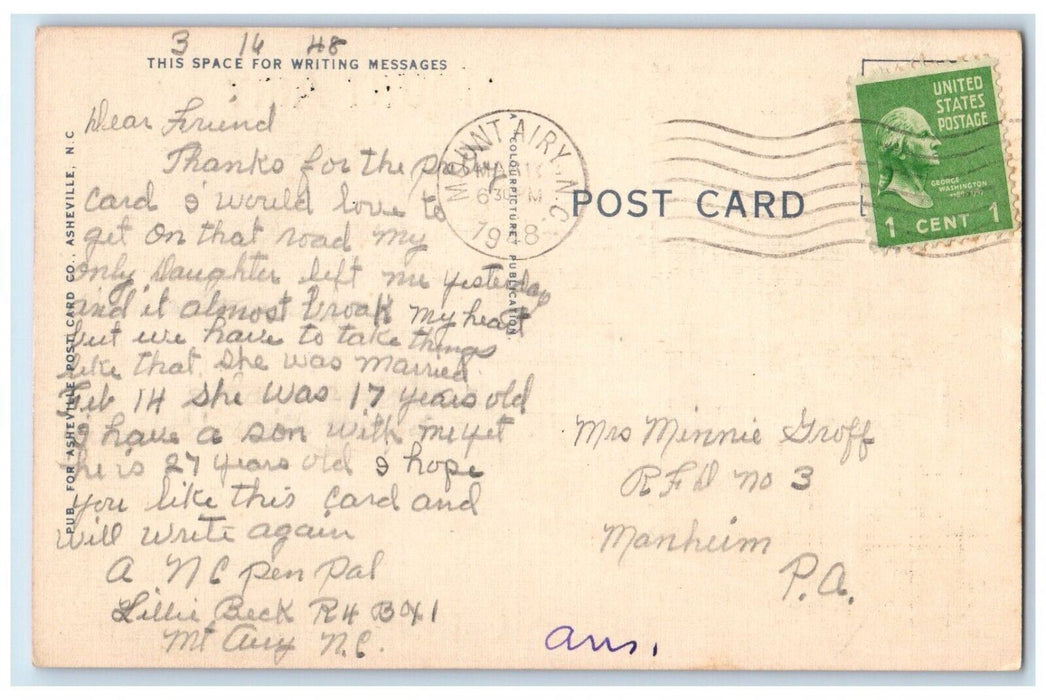 3 16 48
THIS SPACE FOR WRITING MESSAGES
Dear Friend
Thanks for the pretty
card I would love to
get on that road my
only Daughter left me yesterday
and it almost broak my heart
but we have to take things
like that she was married
Feb 14 she was 17 years old
I have a son with me yet
he is 27 years old I hope
you like this card and
will write again
A NC pen pal
Lillie Beck R4 B041
Mt Airy N.C.
PUB. FOR ASHEVILLE POST CARD CO., ASHEVILLE, N. C
"COLOURPICTURE" PUBLICATION
MOUNT AIRY, N.C.
MAR
630 PM
1948
POST CARD
UNITED
STATES
POSTAGE
GEORGE
WASHINGTON
1 CENT 1
Mrs Minnie Groff
R F D No 3
Manheim
P.a.
ans.